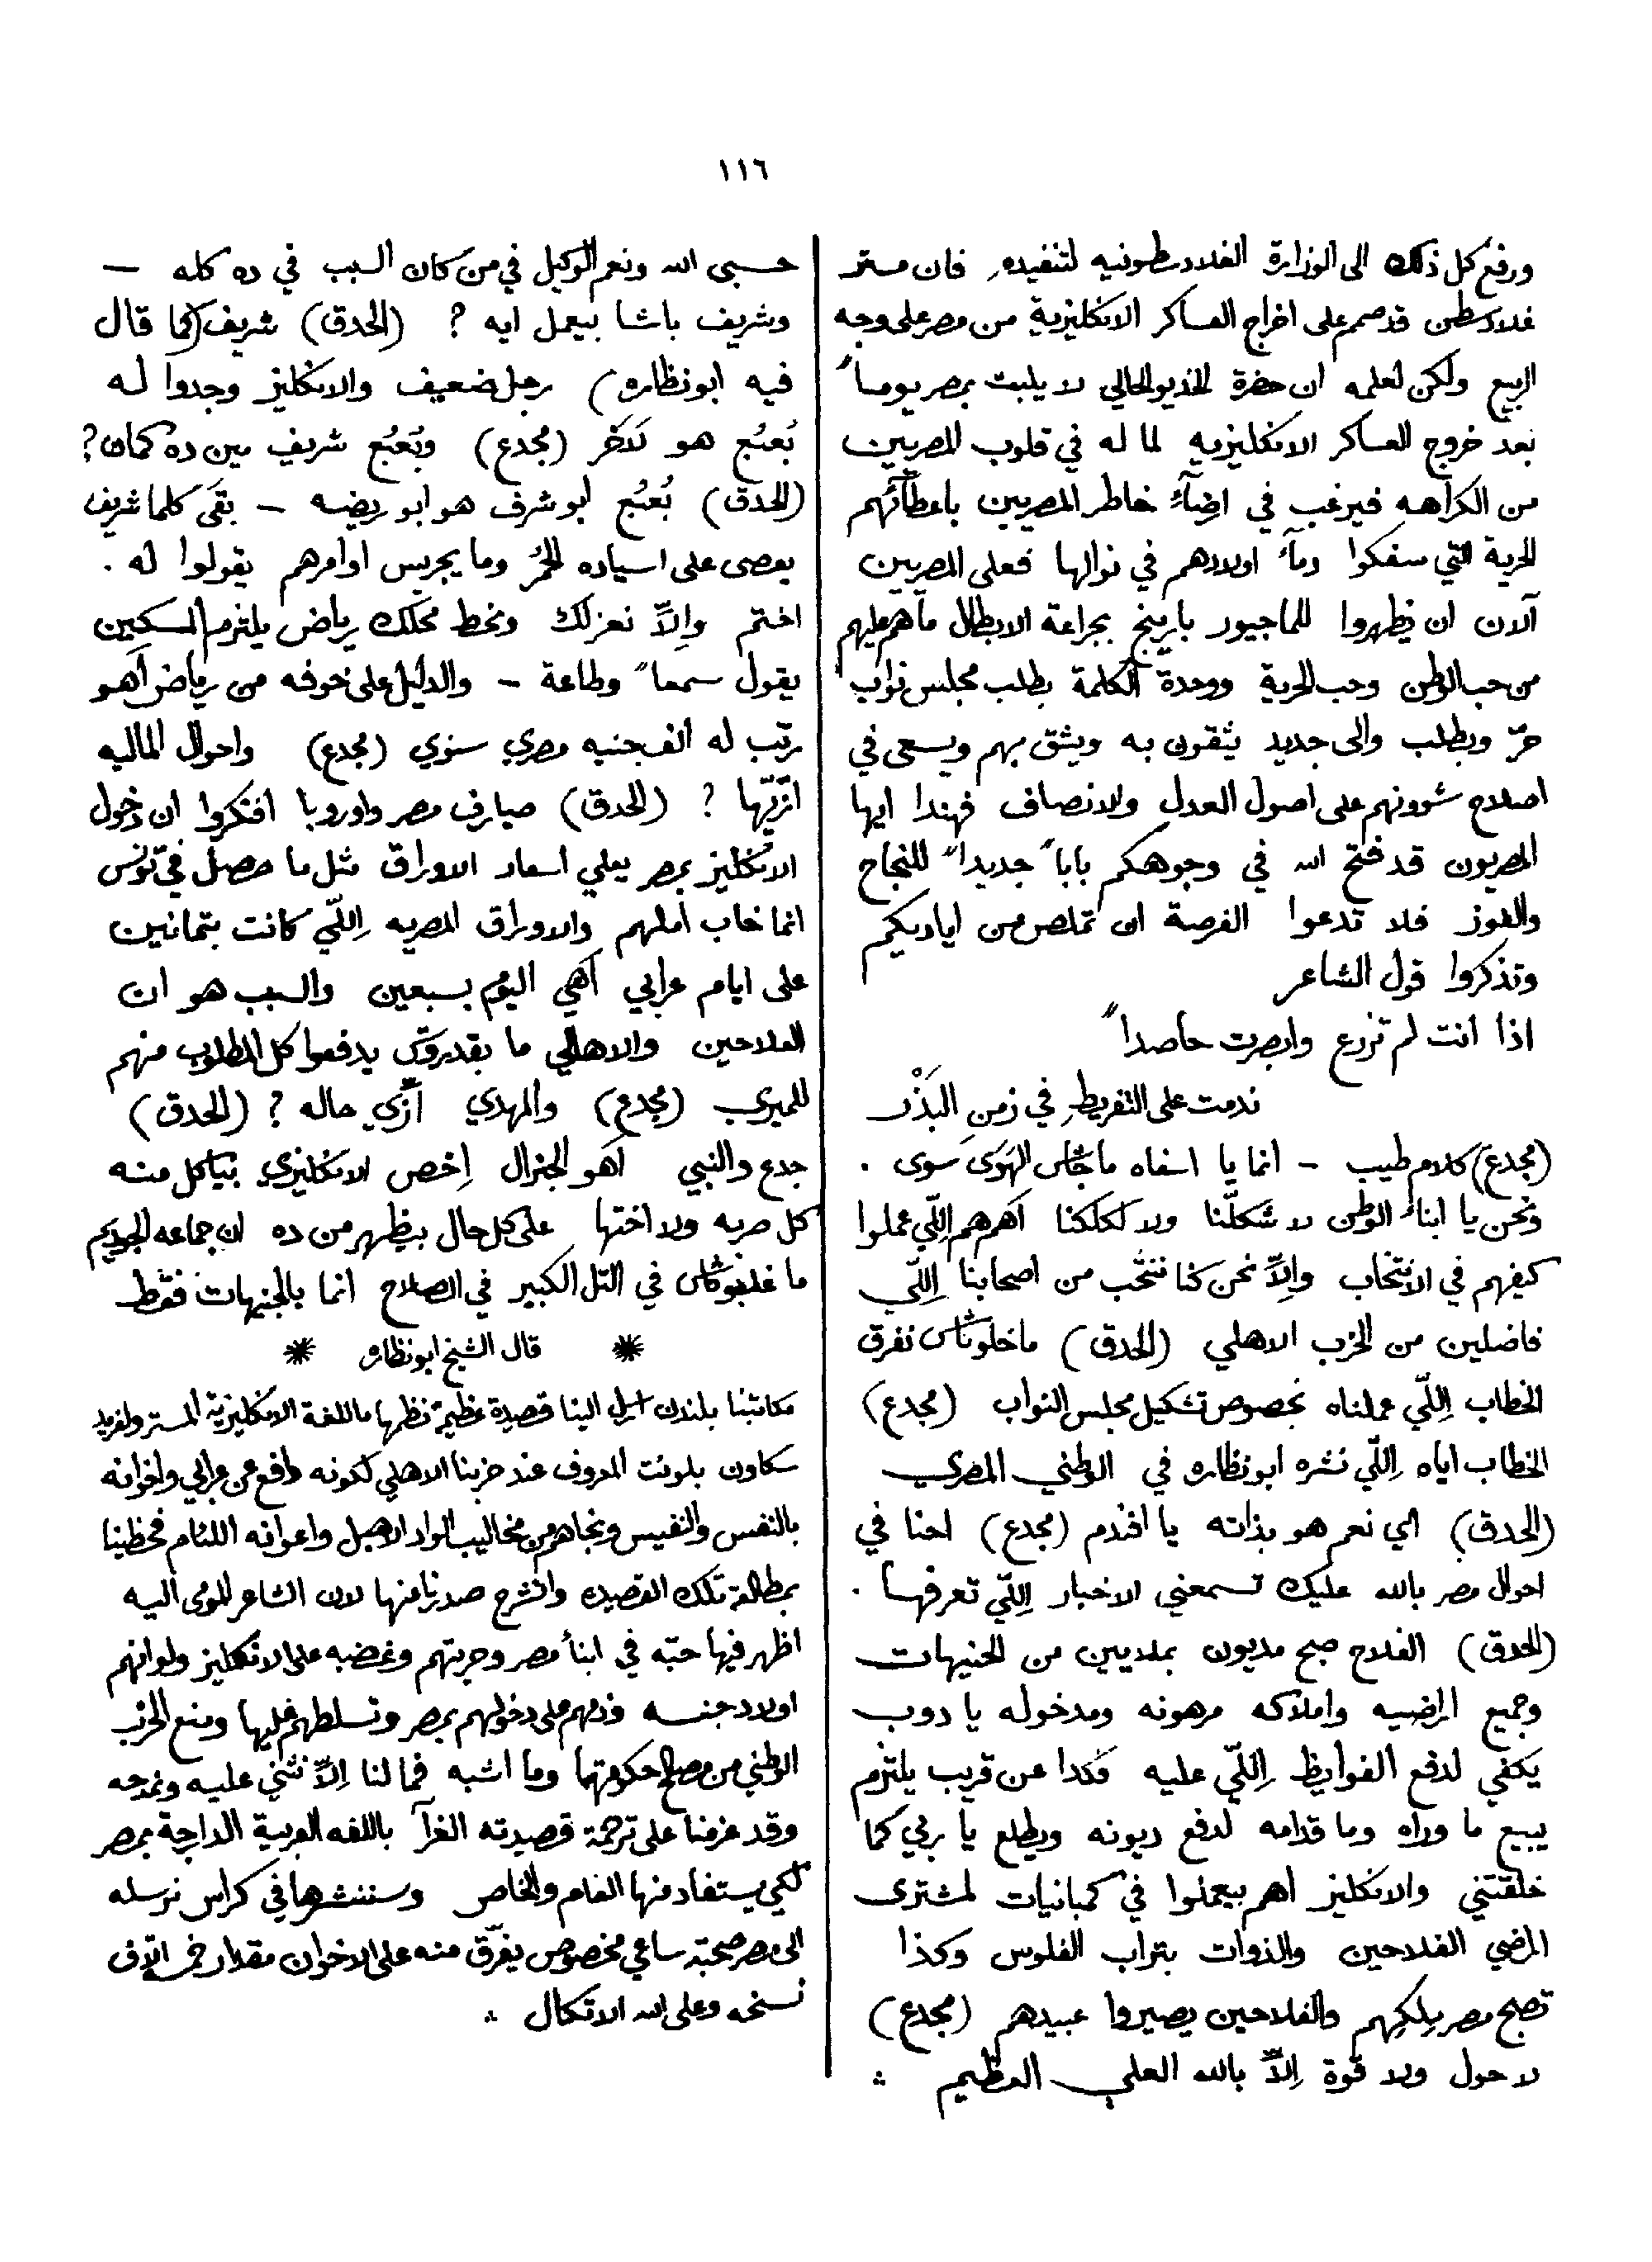 ١١٦
ورفع كل ذلك الى الوزارة الغلادسطونيه لتنفيذه فان مستر
غلادسطن قد صمم على اخراج العساكر الانكليزية من مصر على وجه
الربيع ولكن لعلمه ان حضرة الخديو الحالي لا يلبث بمصر يوماً
بعد خروج العساكر الانكليزيه لما له في قلوب المصريين
من الكراهه فيرغب في ارضآء خاطر المصريين باعطآئهم
الحرية التي سفكوا دمآء اولادهم في نوالها فعلى المصريين
الان ان يظهروا للماجيور بارينج بجراءة الابطال ما هم عليهم
من حب الوطن وحب الحرية ووحدة الكلمة بطلب مجلس نواب
حرّ وبطلب والى جديد يثقون به ويثق بهم ويسعى في
اصلاح شوونهم على اصول العدل والانصاف فهذا ايها
المصريون قد فتح الله في وجوهكم باباً جديداً للنجاح
والفوز فلا تدعوا الفرصة ان تملص من اياديكم
وتذكروا قول الشاعر
اذا انت لم تزرع وابصرت حاصداً
ندمت على التفريط في زمن البَذْر
(مجدع) كلام طيب – انما يا اسفاه ما جاش الهَوَى سَوى .
ونحن يا ابناء الوطن لا شكلّنا ولا لكلكنا اهم هم اِللّي عملوا
كيفهم في الانتخاب واِلاّ نحن كنا ننتخب من اصحابنا اِللّي
فاضلين من الحزب الاهلي (الحدق) ما خلوناش نفرق
الخطاب اِللّي عملناه بخصوص تشكيل مجلس النواب (مجدع)
الخطاب اياه اِللّي نشره ابو نظاره في الوطني المصري
(الحدق) اي نعم هو بذاته يا افندم (مجدع) احنا في
احوال مصر بالله عليك تسمعني الاخبار اِللّي تعرفها .
(الحدق) الفلاح صبح مديون بملايين من الجنيهات
وجميع اراضيه واملاكه مرهونه ومدخوله يا دوب
يكفي لدفع الفوايظ اِللّي عليه فكدا عن قريب يلتزم
يبيع ما وراه وما قدامه لدفع ديونه ويطلع يا ربي كما
خلقتني والانكليز اهم بيعملوا في كمبانيات لمشترى
اراضي الفلاحين والذوات بتراب الفلوس وكذا
تصبح مصر مِلكهم والفلاحين يصيروا عبيدهم (مجدع)
لا حول ولا قوة اِلاّ بالله العلي العظيم ؞
حسبى الله ونعم الوكيل في من كان السبب في ده كله –
وشريف باشا بيعمل ايه ? (الحدق) شريف (كما قال
فيه ابو نظاره) رجل ضعيف والانكليز وجدوا له
بُعبُع هو لاَخر (مجدع) وبُعبُع شريف مين ده كمان?
(الحدق) بُعبُع ابو شرف هو ابو ريضه – بقَى كلما شريف
يعصى على اسياده الحُمر وما يجريس اوامرهم يقولوا له .
اختم واِلاّ نعزلك ونحط محلك رياض يلتزم المسكين
يقول سمعاً وطاعة – والدليل على خوفه من رياض اَهو
رتب له الف جنيه مصري سنوي (مجدع) واحوال الماليه
ازّيّها ? (الحدق) صيارف مصر واوروبا افتكروا ان دخول
الانكليز بمصر يعلي اسعار الاوراق مثل ما حصل في تونس
انما خاب املهم والاوراق المصريه اِللّي كانت بتمانين
على ايام عرابي اَهي اليوم بسبعين والسبب هو ان
الفلاحين والاهالي ما يقدروش يدفعوا كل المطلوب منهم
للميري (مجدع) والمهدي ازّي حاله ? (الحدق)
جدع والنبي اَهو الجنرال اِخص الانكليزي بياكل منه
كل حربه ولا اختها على كل حال بيظهر من ده ان جماعه الجوديم
ما غلبوناش في التل الكبير في الصلاح انما بالجنيهات فقط
✷ قال الشيخ ابو نظاره ✷
مكاتبنا بلندن ارسل الينا قصيدة عظيمة نظمها باللغة الانكليزية المستر ولفريد
سكاون بلونت المعروف عند حزبنا الاهلي لكونه دافع عن عرابي واخوانه
بالنفس والنفيس ونجاهم من مخاليب الواد الاهبل واعوانه اللئام فحظينا
بمطالعة تلك القصيده وانشرح صدرنا منها لان الشاعر المومى اليه
اظهر فيها حبّه في ابنأ مصر وحريتهم وغضبه على الانكليز ولو انهم
اولاد جنسه وذمهم على دخولهم بمصر وتسلطهم عليها ومنع الحزب
الوطني من اصلاح حكومتها وما اشبه فما لنا اِلاّ نثني عليه ونمدحه
وقد عزمنا على ترجمة قصيدته الغرآ باللغه العربية الدارجة بمصر
لكي يستفاد منها العام والخاص وسننشرها في كراس نرسله
الى مصر صحبة ساعي مخصوص يفرّق منه على الاخوان مقدار خمس الآف
نسخه وعلى الله الاتكال ؞